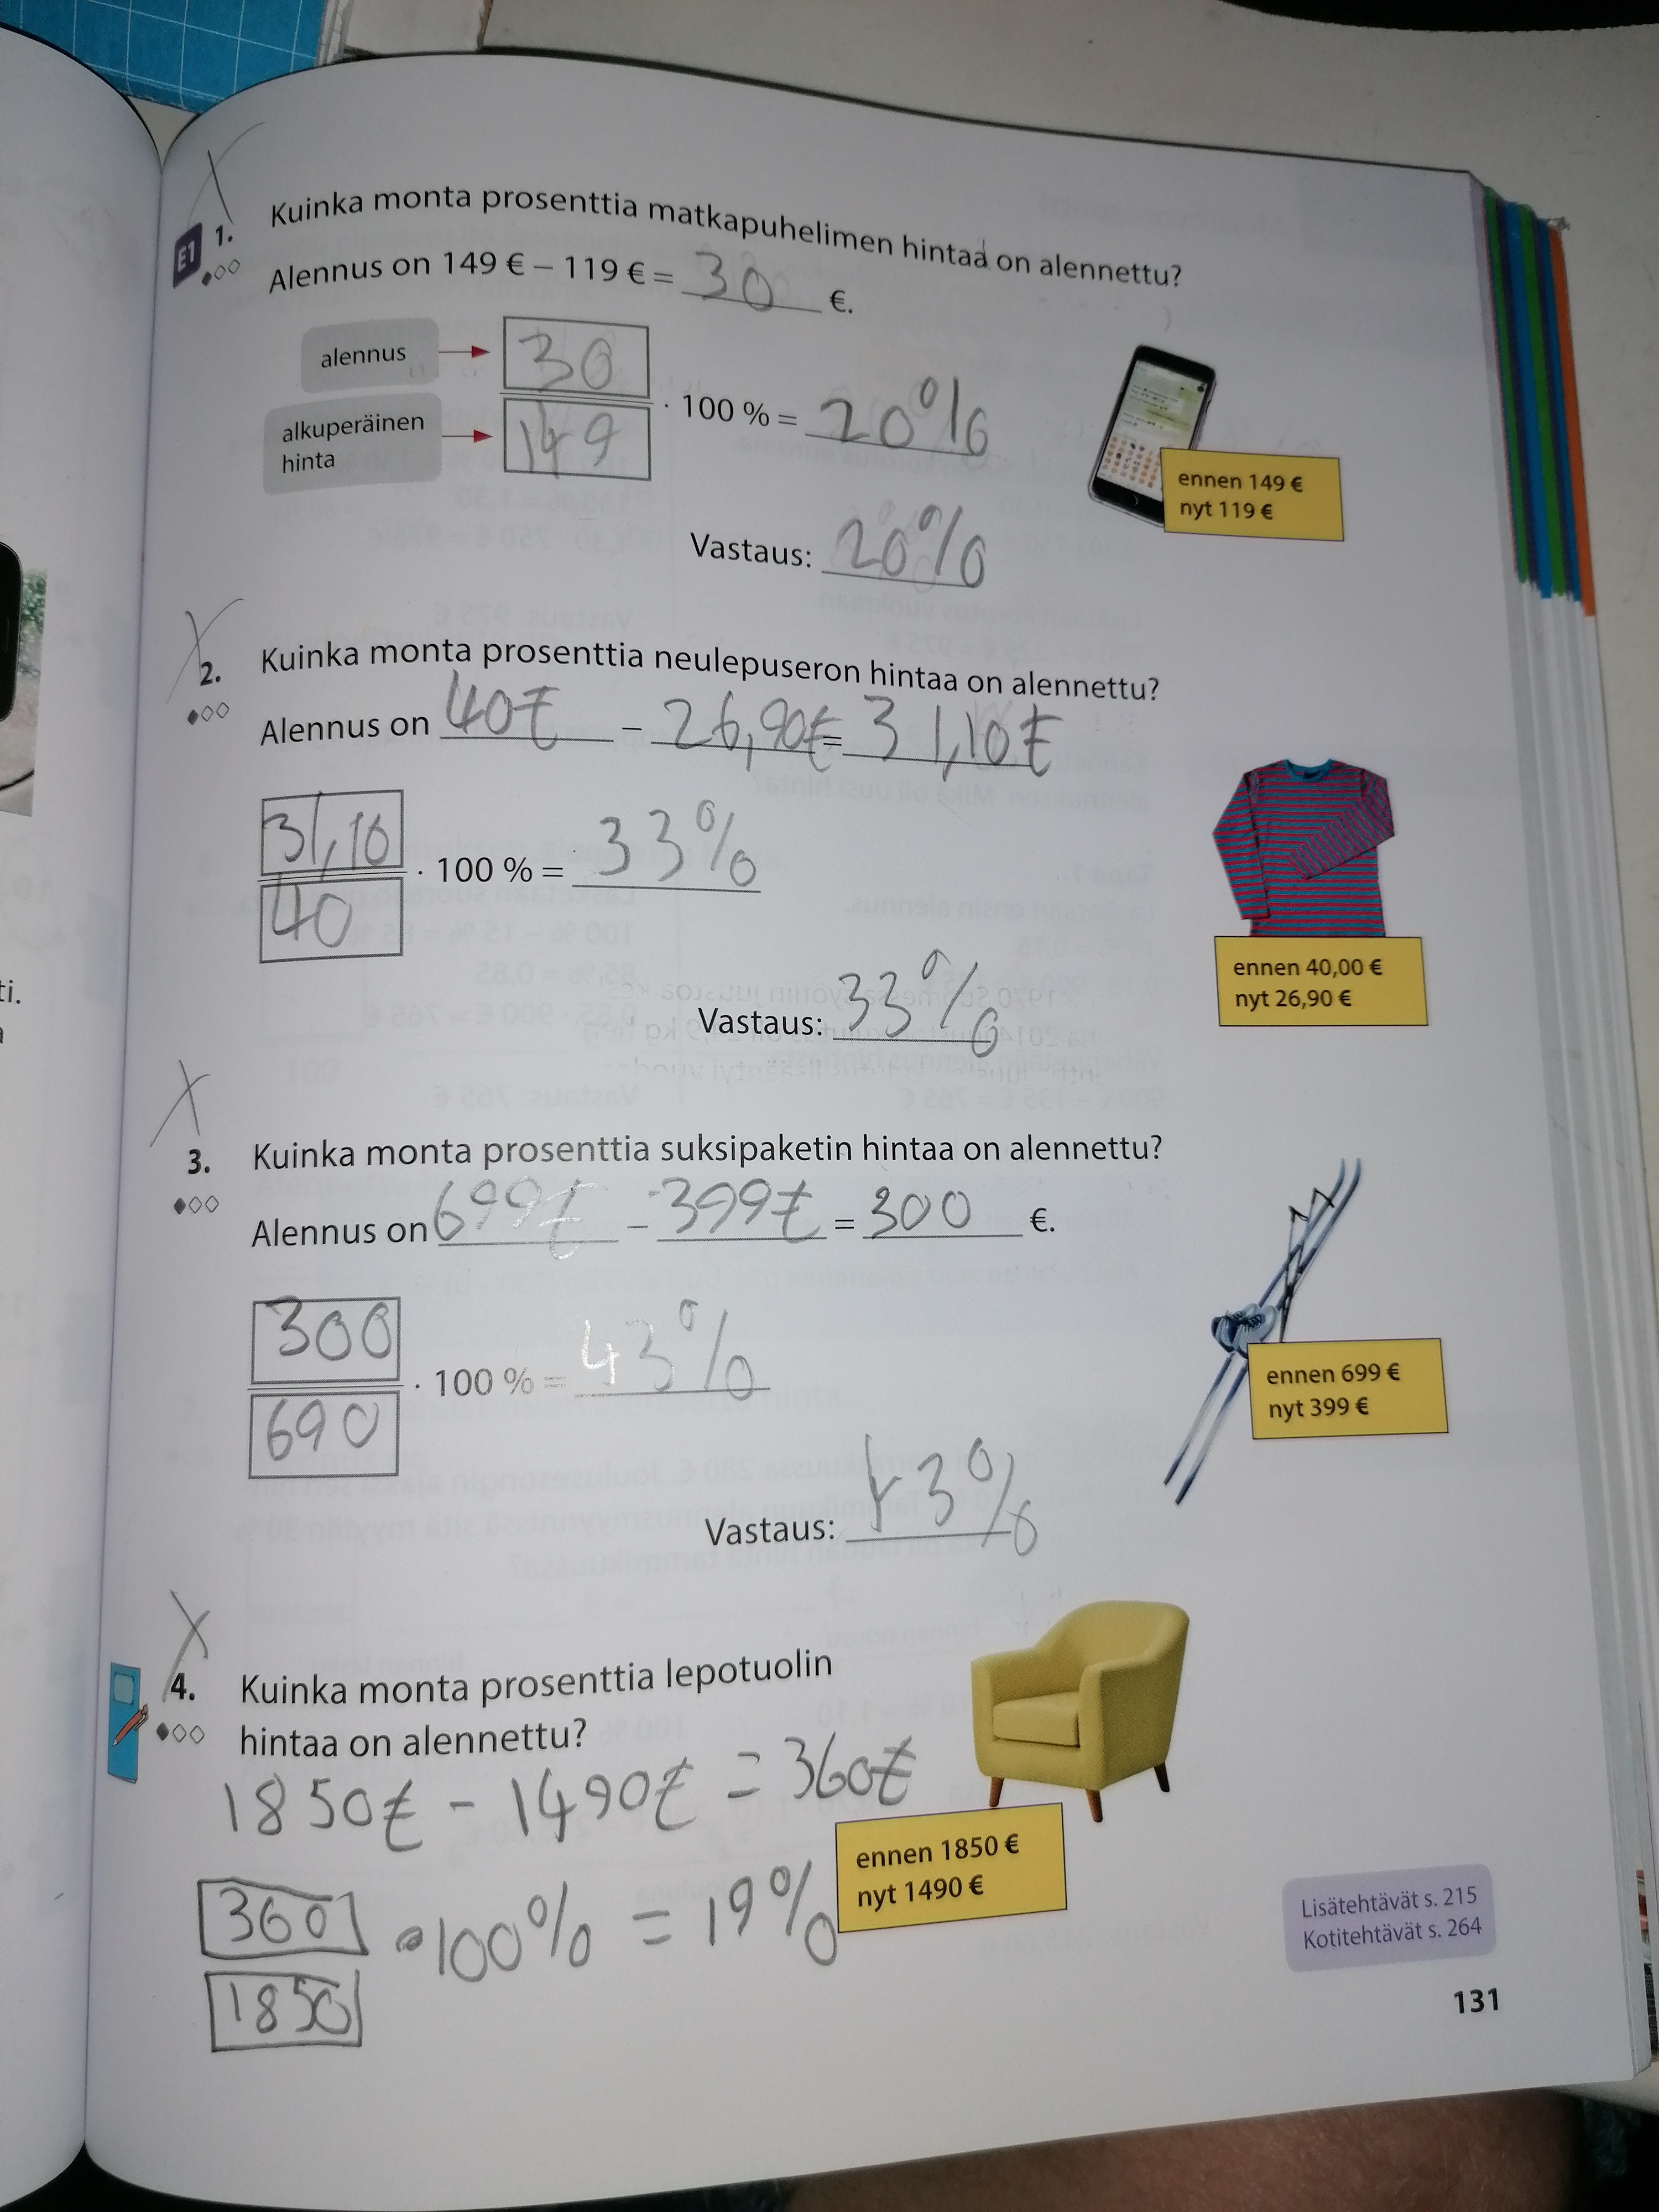 E1
1. Kuinka monta prosenttia matkapuhelimen hintaa on alennettu?
Alennus on 149 € – 119 € = 30 €.
alennus
30
alkuperäinen
hinta
149
· 100 % = 20%
ennen 149 €
nyt 119 €
Vastaus: 20%
2. Kuinka monta prosenttia neulepuseron hintaa on alennettu?
Alennus on 40€ – 26,90€ = 31,10€
31,10
40
· 100 % = 33%
ennen 40,00 €
nyt 26,90 €
Vastaus: 33%
3. Kuinka monta prosenttia suksipaketin hintaa on alennettu?
Alennus on 699€ – 399€ = 300 €.
300
690
· 100 % = 43%
ennen 699 €
nyt 399 €
Vastaus: 43%
4. Kuinka monta prosenttia lepotuolin
hintaa on alennettu?
1850€ - 1490€ = 360€
ennen 1850 €
nyt 1490 €
360
1850
· 100% = 19%
Lisätehtävät s. 215
Kotitehtävät s. 264
131
ti.